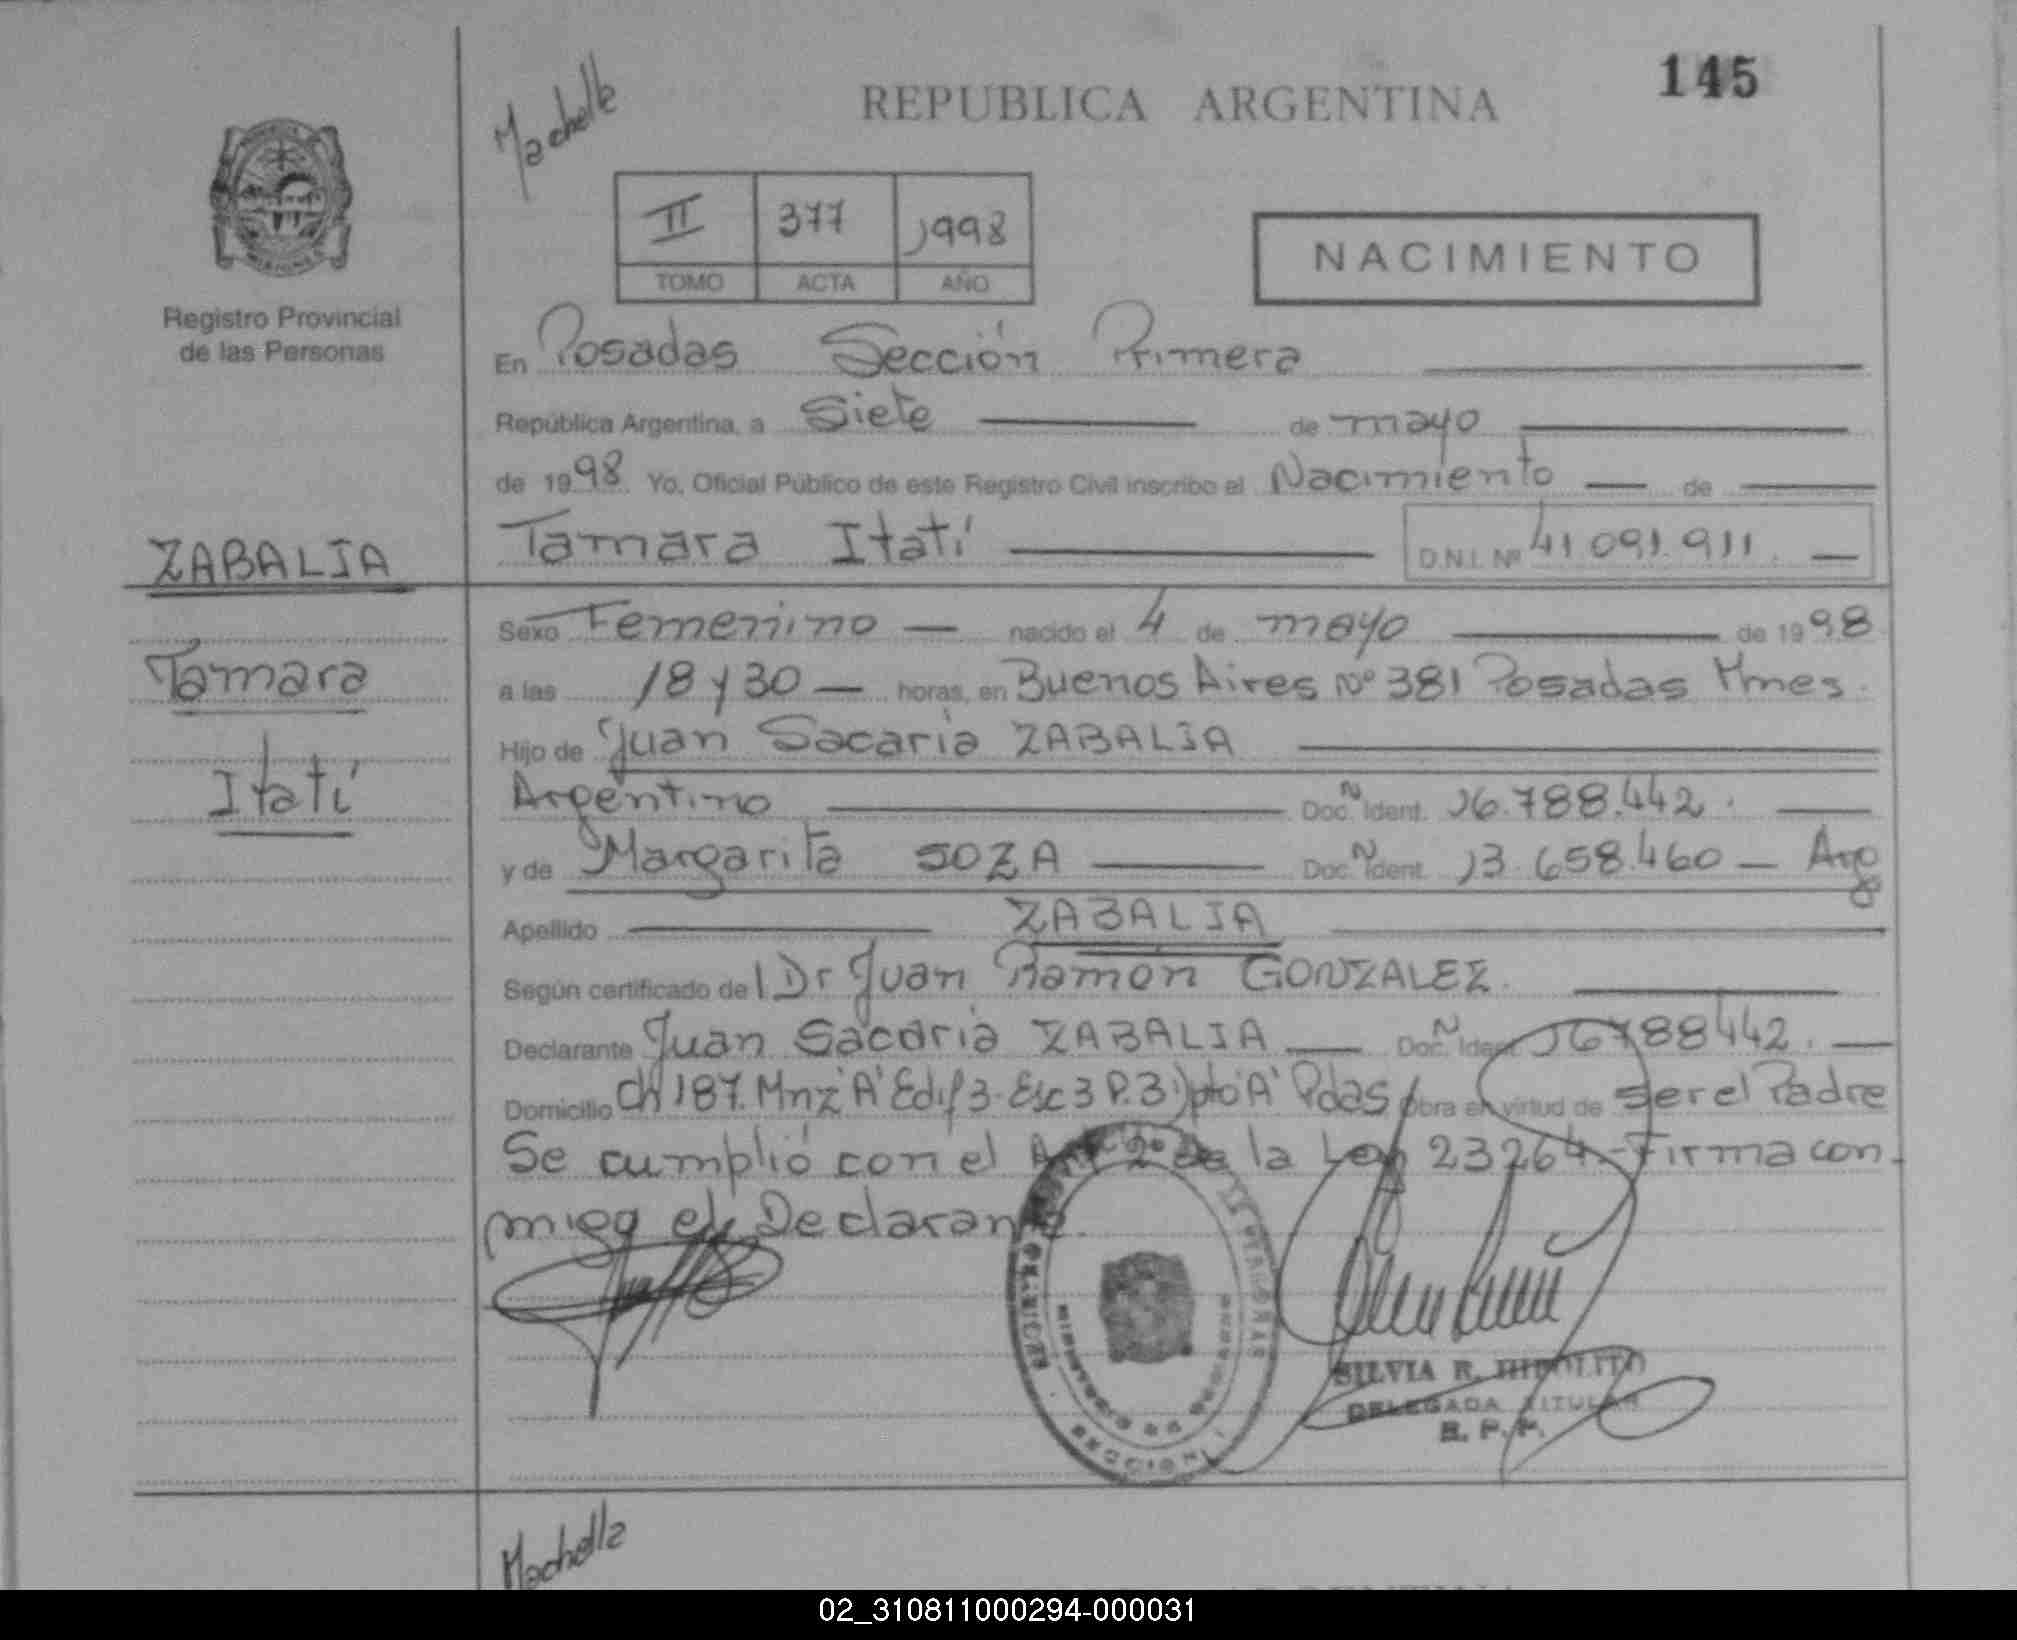 145
Machelle
REPUBLICA ARGENTINA
II 377 1998
TOMO ACTA AÑO
NACIMIENTO
Registro Provincial
de las Personas
En Posadas Sección Primera
República Argentina, a Siete de mayo
de 1998 Yo, Oficial Público de este Registro Civil inscribo el Nacimiento de
Tamara Itatí D.N.I. Nº 41.091.911.
ZABALIA
Tamara
Itatí
Sexo Femenino nacido el 4 de mayo de 1998
a las 18 y 30 horas, en Buenos Aires Nº 381 Posadas Mnes.
Hijo de Juan Sacaria ZABALIA
Argentino Doc. Ident. 16.788.442.
y de Margarita SOZA Doc. Ident. 13.658.460 Arg
Apellido ZABALIA
Según certificado del Dr Juan Ramón GONZALEZ.
Declarante Juan Sacaria ZABALIA Doc. Ident. 16788442.
Domicilio Ch 187. Mnz "A" Edif 3. Esc 3 P. 3 Dpto "A" Pdas obra en virtud de ser el Padre
Se cumplió con el Art 2º de la Ley 23264 - Firma con
migo el Declarante.
SILVIA R. HIPOLITO
DELEGADA TITULAR
R. P. P.
Machella
02_310811000294-000031